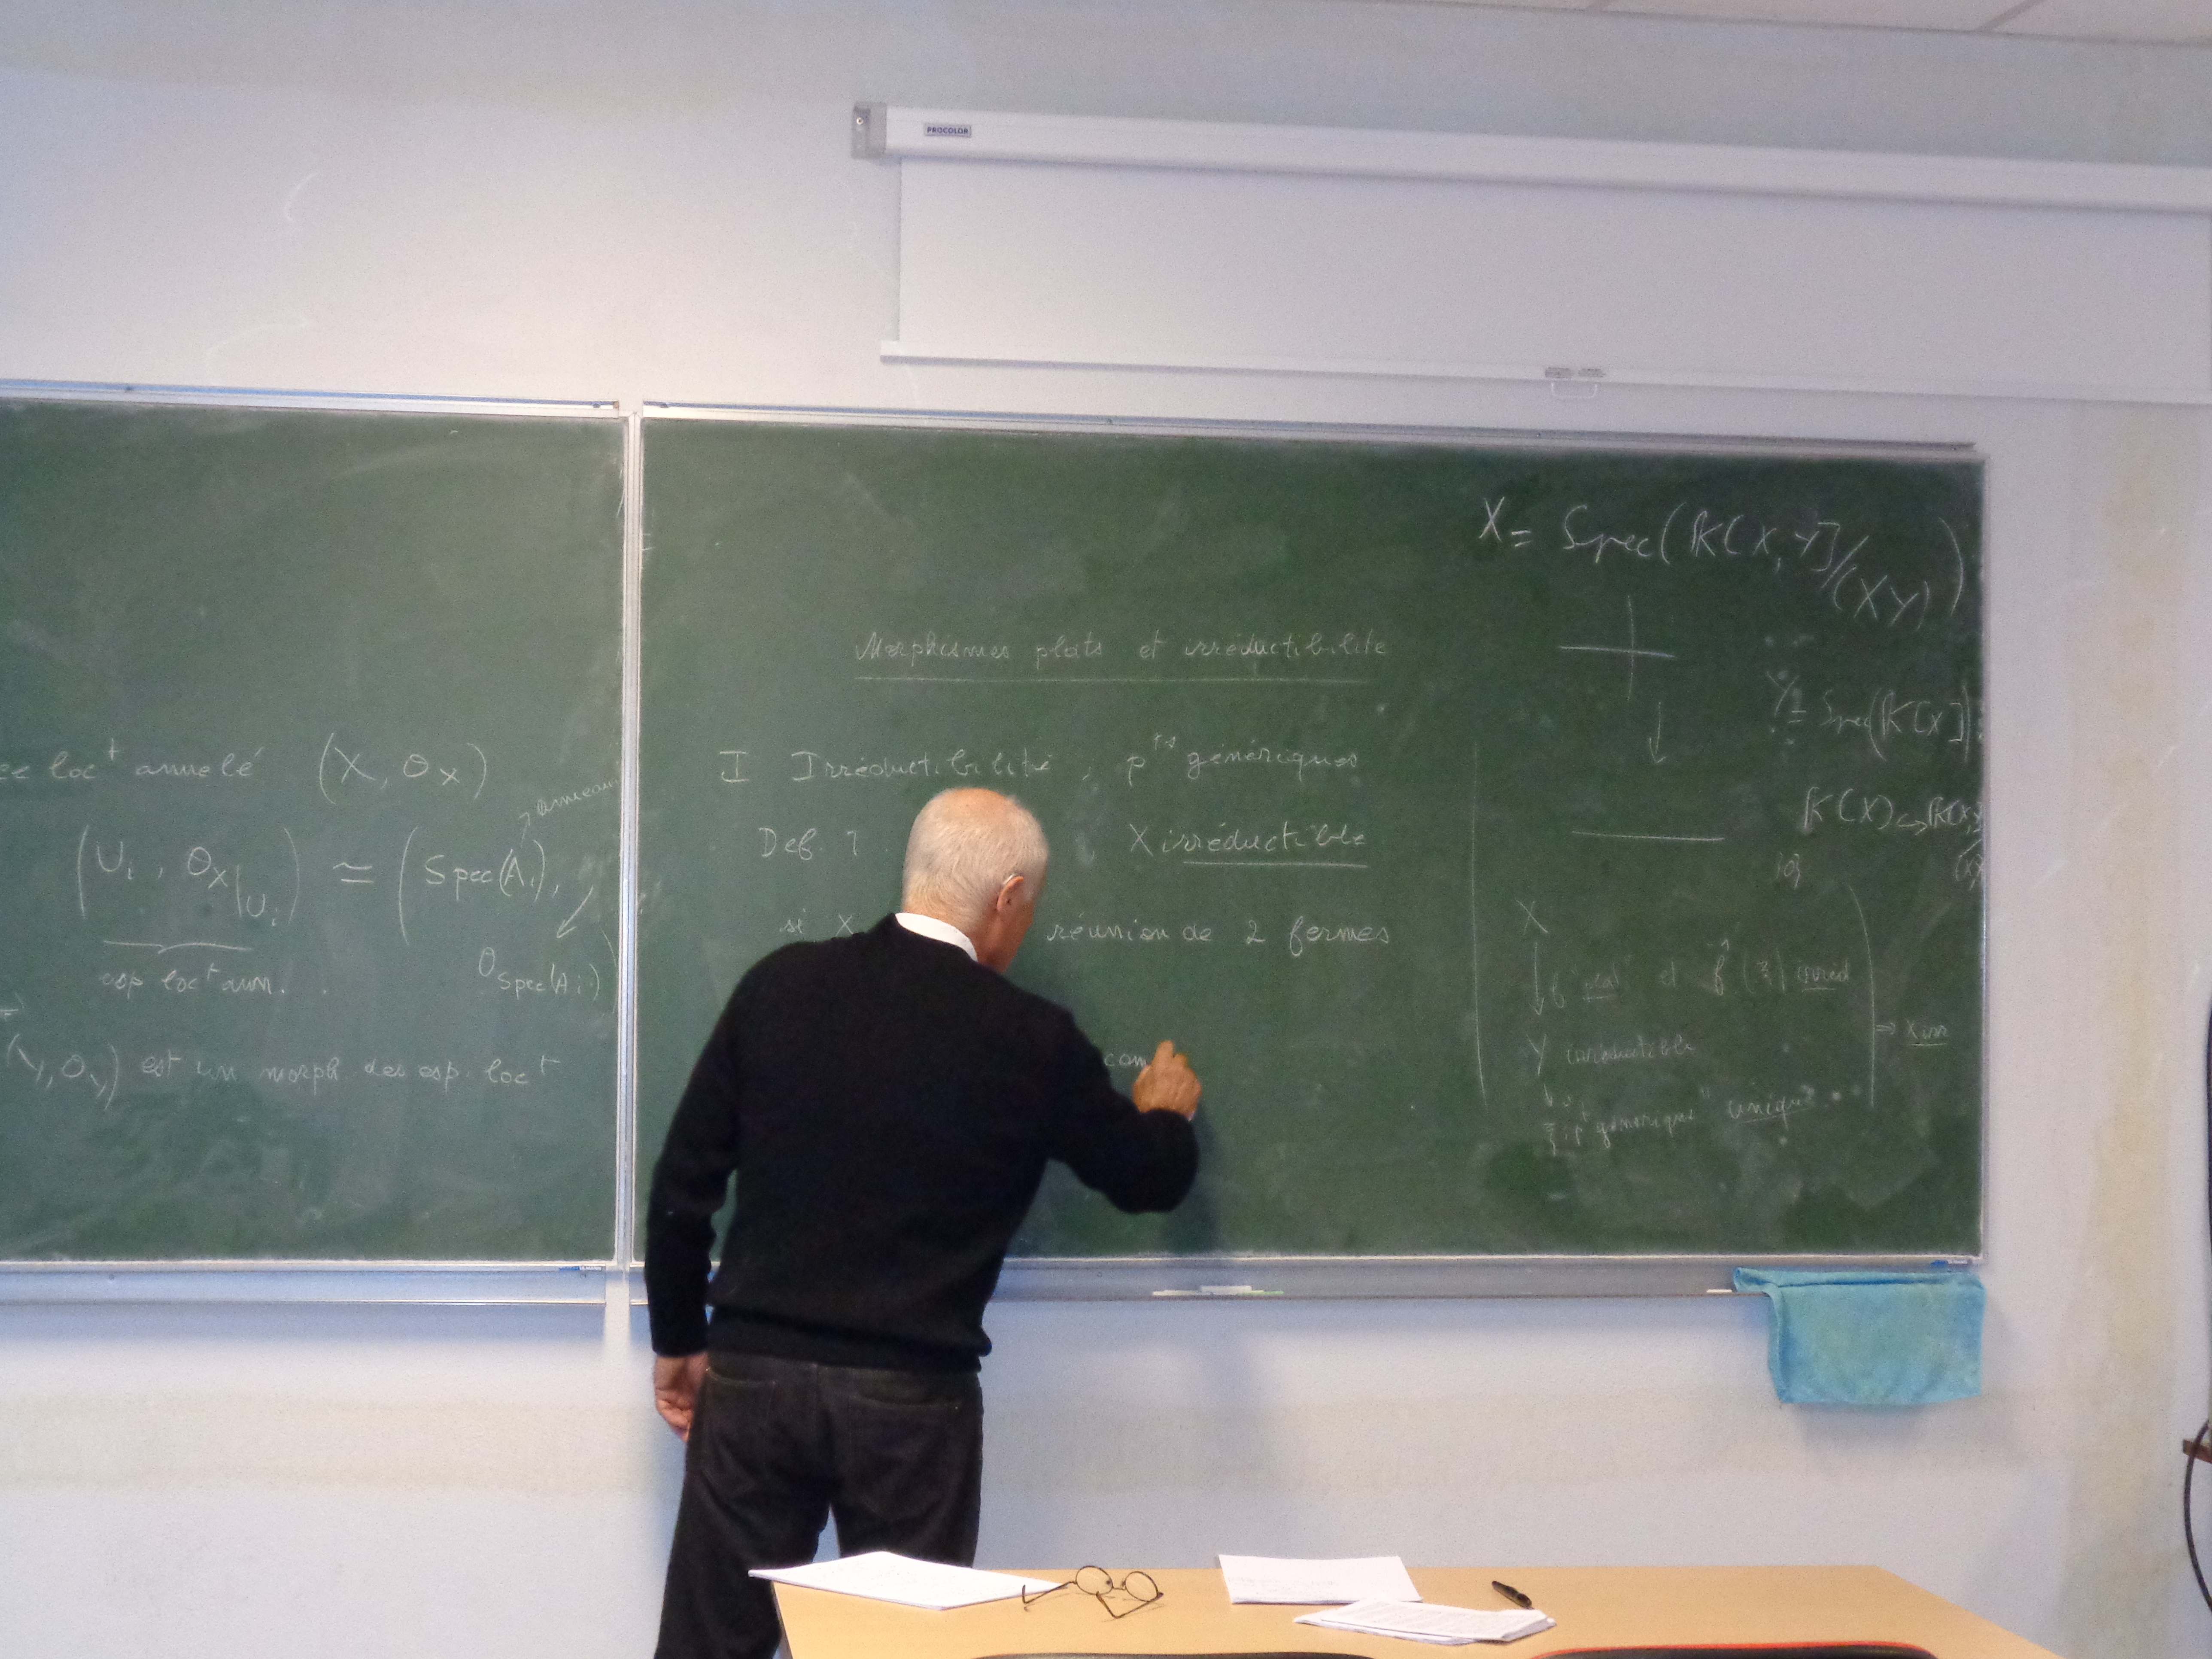 PROCOLOR
loc^t annelé (X, O_X)
anneau
(U_i, O_X|U_i) ≃ (Spec(A_i),
O_Spec(A_i))
esp loc^t ann.
(Y, O_Y) est un morph. des esp. loc^t
Morphismes plats et irréductibilité
I Irréductibilité, p^ts génériques
Def. 1 X irréductible
si X réunion de 2 fermés
com
X = Spec(k[X,Y]/(XY))
Y = Spec(k[X])
k[X] ↪ k[X,Y]
X
↓ f "plat" et f^-1(ξ) irred
Y irréductible
⇒ X irr
ξ: p^t générique "unique"